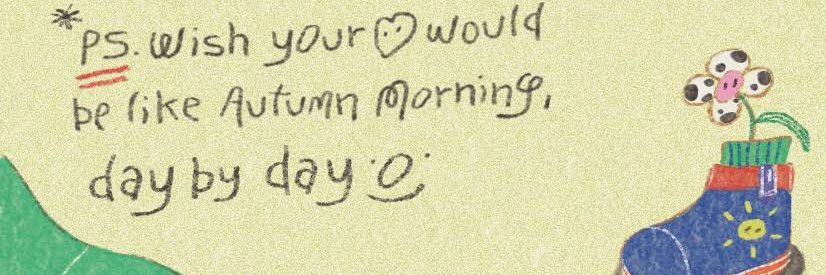 *PS. Wish your ♡ would
be like Autumn Morning,
day by day